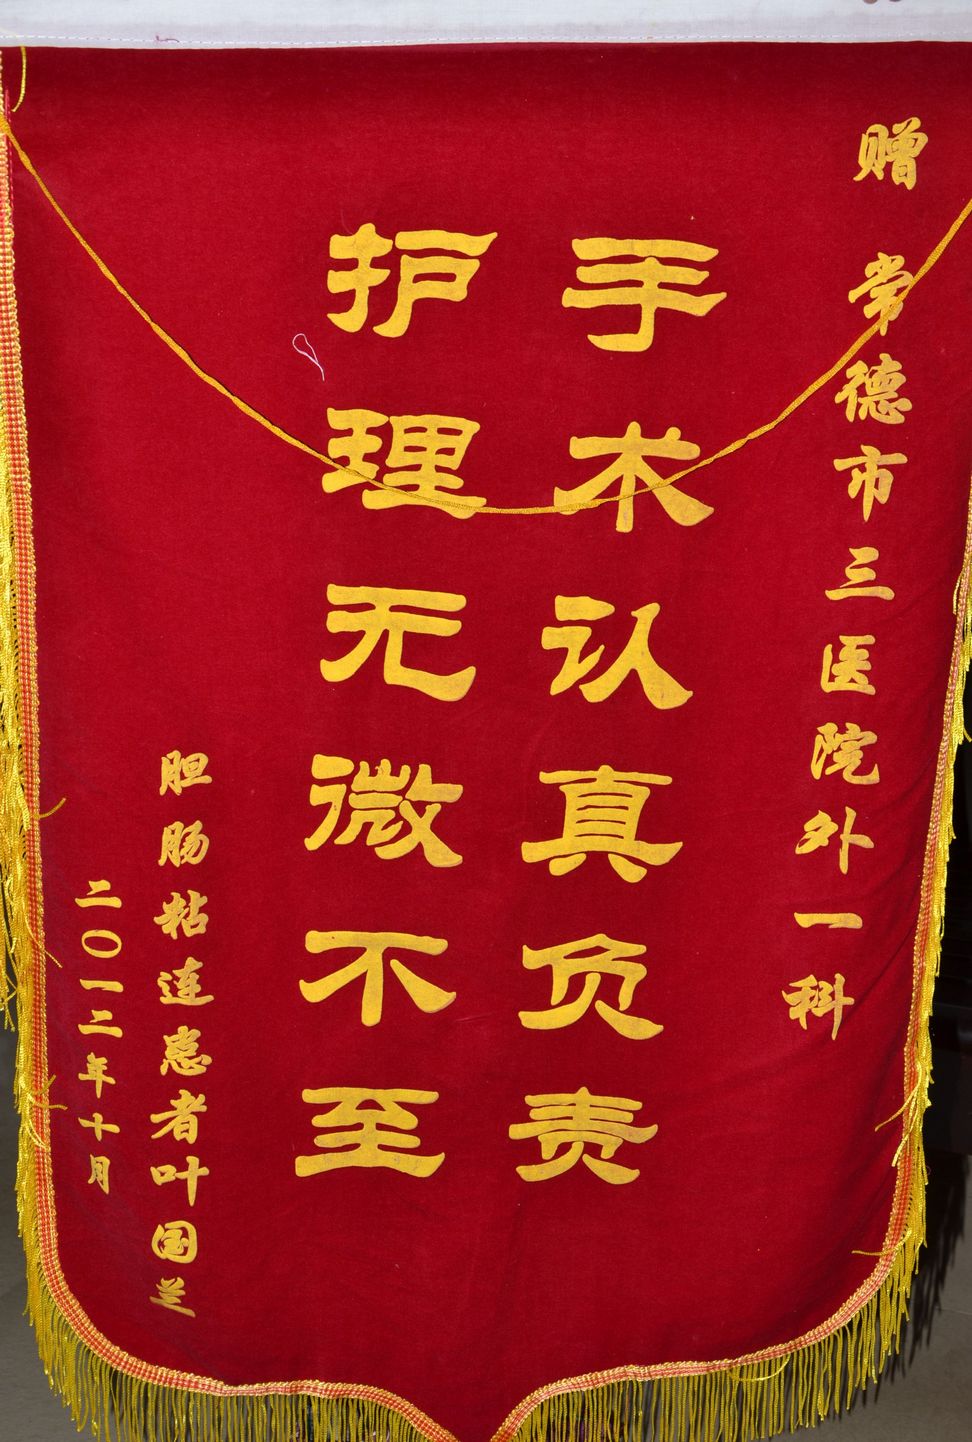 赠 常德市三医院外一科
手术认真负责
护理无微不至
胆肠粘连患者叶国兰
二〇一二年十月